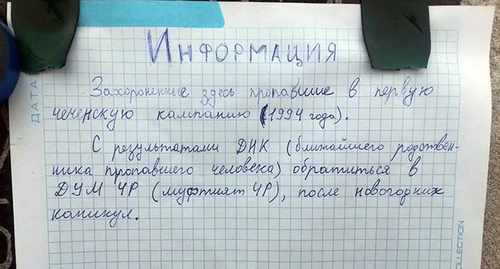 ДАТА
ИНФОРМАЦИЯ
Захороненные здесь пропавшие в первую
чеченскую кампанию (1994 года).
С результатами ДНК (ближайшего родствен-
ника пропавшего человека) обратиться в
ДУМ ЧР (муфтият ЧР), после новогодних
каникул.
COLLECTION